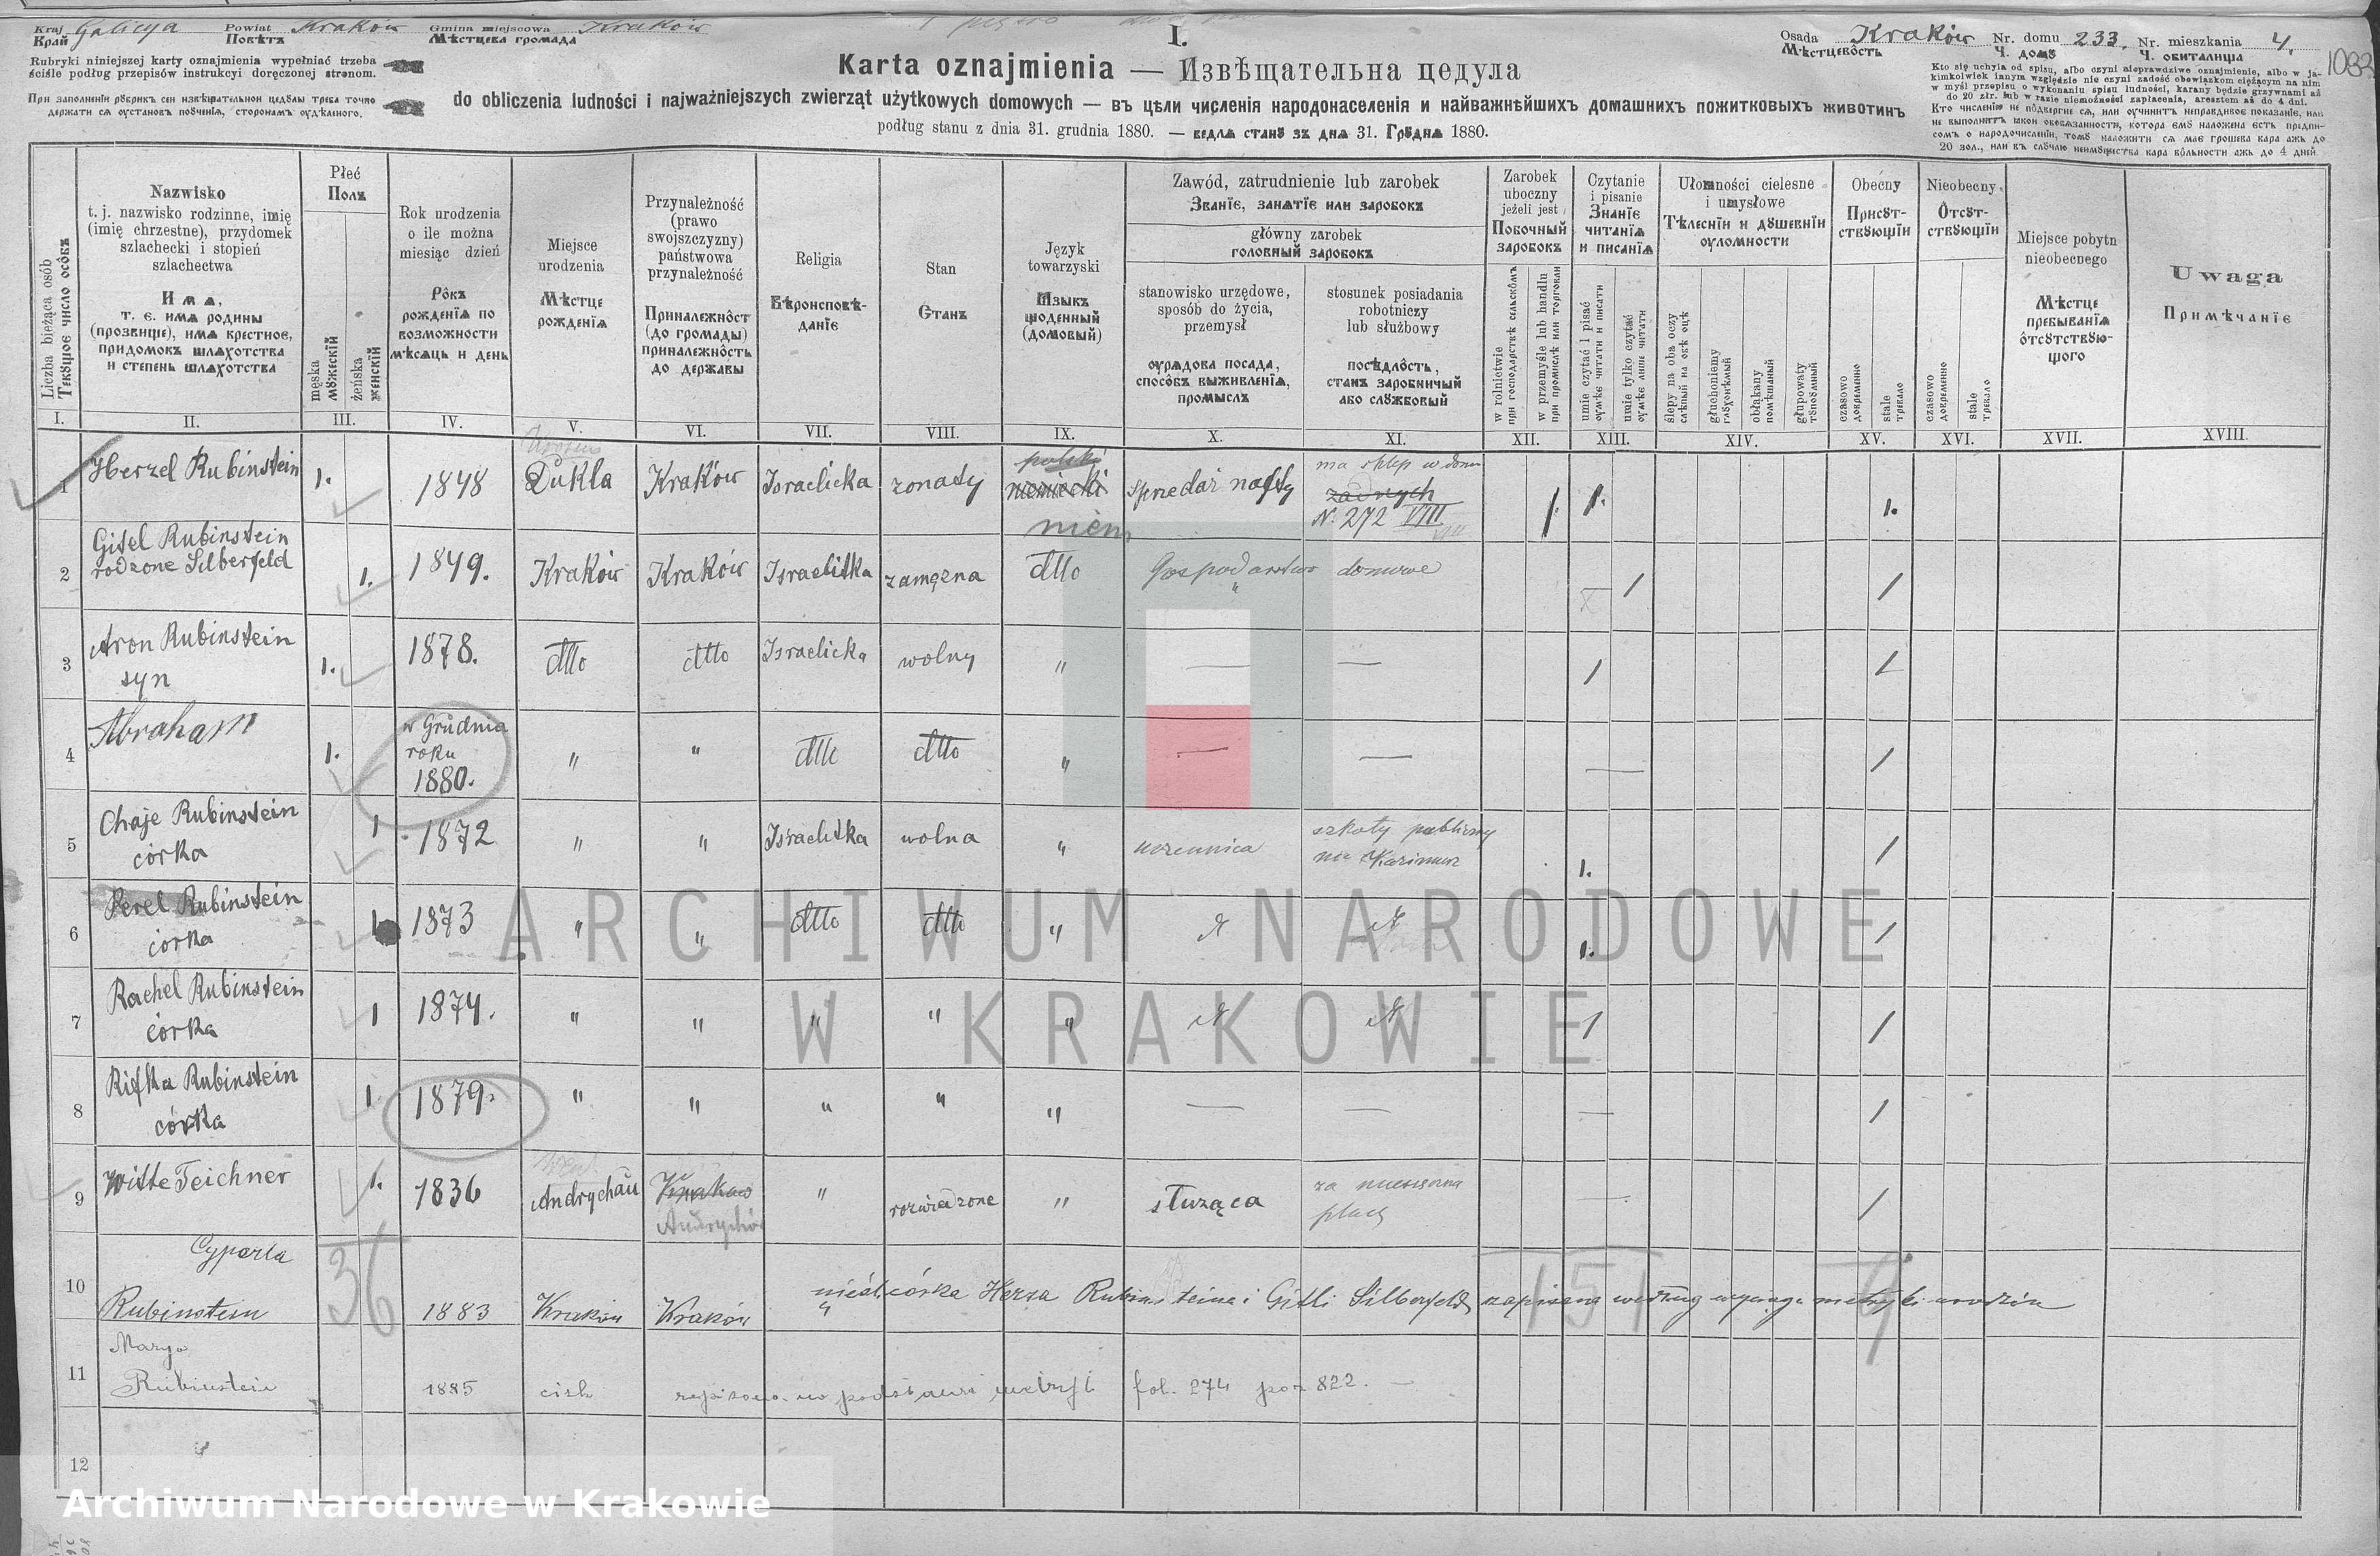 Kraj Galicya Powiat Kraków Gmina miejscowa Kraków
Край Повѣтъ Мѣстцева громада
Rubryki niniejszej karty oznajmienia wypełniać trzeba
ściśle podług przepisów instrukcyi doręczonej stronom.
При заполненіи рꙋбрик сеи извѣщательнои цедꙋлы треба точно
держати сѧ оустановъ поꙋченіѧ, сторонамъ оудѣленого.
I.
Karta oznajmienia — Извѣщательна цедула
do obliczenia ludności i najważniejszych zwierząt użytkowych domowych — въ цѣли численія народонаселенія и найважнѣйшихъ домашнихъ пожитковыхъ животинъ
podług stanu z dnia 31. grudnia 1880. — ведлѧ станꙋ зъ днѧ 31. Грꙋднѧ 1880.
Osada Kraków Nr. domu 233. Nr. mieszkania 4.
Мѣстцевôсть Ч. домꙋ Ч. обиталища
1083
Kto się uchyla od spisu, albo czyni nieprawdziwe oznajmienie, albo w ja-
kimkolwiek innym względzie nie czyni zadość obowiązkom ciężącym na nim
w myśl przepisu o wykonaniu spisu ludności, karany będzie grzywnami aż
do 20 złr. lub w razie niemożności zapłacenia, aresztem aż do 4 dni.
Кто численію не пôдвергне сѧ, или оучинитъ неправдивое показаніе, или
не выполнитъ законъ обовѧзанности, котора емꙋ наложена есть предпи-
сомъ о народочисленіи, томꙋ наложити сѧ має грошева кара ажь до
20 зол., или въ слꙋчаю неимꙋщества кара вôльности ажь до 4 дней.
Liczba bieżąca osób
Текꙋщое число осôбъ
Nazwisko
t. j. nazwisko rodzinne, imię
(imię chrzestne), przydomek
szlachecki i stopień
szlachectwa
Имѧ,
т. е. имѧ родины
(прозвище), имѧ крестное,
придомокъ шлѧхотства
и степень шлѧхотства
Płeć
Полъ
męska
мꙋжескій
żeńska
женскій
Rok urodzenia
o ile można
miesiąc dzień
Рôкъ
рожденіѧ по
возможности
мѣсѧць и день
Miejsce
urodzenia
Мѣстце
рожденіѧ
Przynależność
(prawo
swojszczyzny)
państwowa
przynależność
Приналежнôст
(до громады)
приналежнôсть
до державы
Religia
Вѣроисповѣ-
даніе
Stan
Станъ
Język
towarzyski
Ѩзыкъ
щоденный
(домовый)
Zawód, zatrudnienie lub zarobek
Званіе, занѧтіе или заробокъ
główny zarobek
головный заробокъ
stanowisko urzędowe,
sposób do życia,
przemysł
оурѧдова посада,
способъ выживленіѧ,
промыслъ
stosunek posiadania
robotniczy
lub służbowy
посѣдлôсть,
станъ заробничый
або слꙋжбовый
Zarobek
uboczny
jeżeli jest
Побочный
заробокъ
w rolnictwie
при господарствѣ сельскôмъ
w przemyśle lub handlu
при промыслѣ или торговли
Czytanie
i pisanie
Знаніе
читаніѧ
и писаніѧ
umie czytać i pisać
оумѣє читати и писати
umie tylko czytać
оумѣє лише читати
Ułomności cielesne
i umysłowe
Тѣлеснiи и дꙋшевнiи
оуломности
ślepy na oba oczy
слѣпый на обѣ оцѣ
głuchoniemy
глꙋхонѣмый
obłąkany
помѣшаный
głupowaty
тꙋпоꙋмный
Obecny
Присꙋт-
ствꙋющіи
czasowo
довременно
stale
тревало
Nieobecny
Ôтсꙋт-
ствꙋющіи
czasowo
довременно
stale
тревало
Miejsce pobytu
nieobecnego
Мѣстце
пребываніѧ
ôтсꙋтствꙋю-
щого
Uwaga
Примѣчаніе
I. II. III. IV. V. VI. VII. VIII. IX. X. XI. XII. XIII. XIV. XV. XVI. XVII. XVIII.
polski
ma sklep w domu
1 Herzel Rubinstein 1. 1848 Dukla Kraków Israelicka zonaty niemiecki Sprzedaż nafty żadnych 1. 1. 1.
niem
N. 272 VIII
Gitel Rubinstein
2 rodzone Silberfeld 1. 1849. Kraków Kraków Israelitka zamęzna dtto Gospodarstwo domowe / /
3 Aron Rubinstein 1. 1878. dtto dtto Israelicka wolny " — — / /
syn
4 Abraham 1. w Grudnia " " dtto dtto " — — — /
roku
1880.
5 Chaje Rubinstein 1 1872 " " Israelitka wolna " uczennica szkoły publiczny 1. /
córka na Kazimierz
6 Perel Rubinstein 1. 1873 " " dtto dtto " 1. /
córka
7 Rachel Rubinstein 1 1874. " " " " " / /
córka
8 Rifka Rubinstein 1. 1879. " " " " " — — — /
córka
9 Witte Teichner 1. 1836 Andrychau Krakau " rozwiedzone " służąca za miesięczna — /
Andrychów płacą
36 151 9
Cyperla
10 Rubinstein 1883 Kraków Kraków " nieśl. córka Herza Rubinsteina i Gitli Silberfeld, zapisana według wyciągu metryki urodzin
Marya
11 Rubinstein 1885 zapisano na podstawi metryki fol. 274 poz 822. —
12
ARCHIWUM NARODOWE
W KRAKOWIE
Archiwum Narodowe w Krakowie